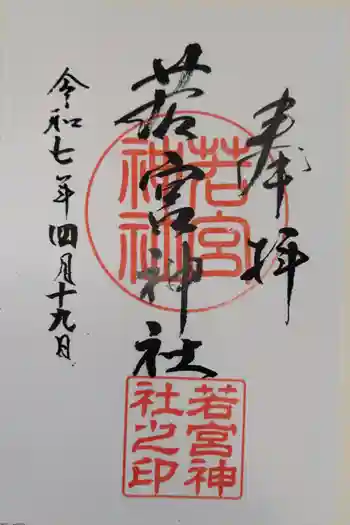 奉拝
若宮神社
若宮神社
若宮神社之印
令和七年四月十九日